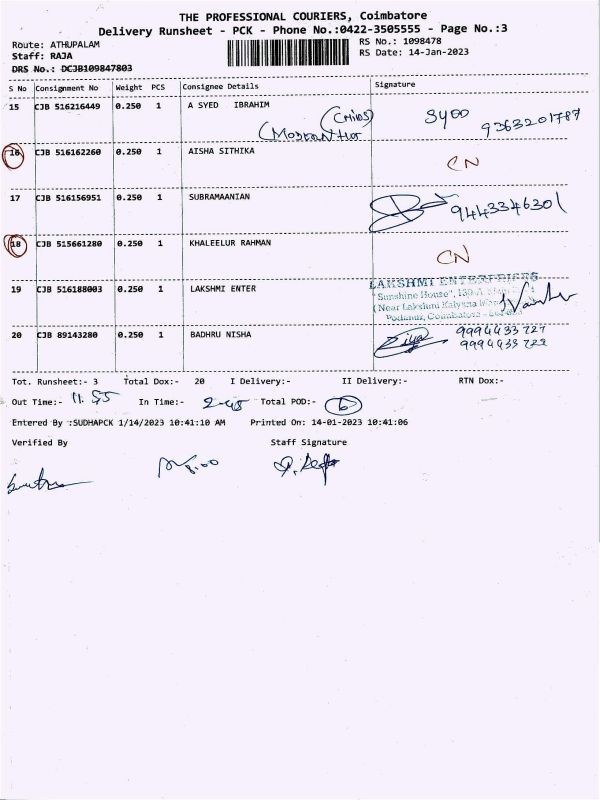 THE PROFESSIONAL COURIERS, Coimbatore
Delivery Runsheet - PCK - Phone No.:0422-3505555 - Page No.:3
Route: ATHUPALAM
RS No.: 1098478
Staff: RAJA
RS Date: 14-Jan-2023
DRS No.: DCJB109847803
S No Consignment No Weight PCS Consignee Details Signature
15 CJB 516216449 0.250 1 A SYED IBRAHIM
SYED 9363201787
16 CJB 516162260 0.250 1 AISHA SITHIKA CN
17 CJB 516156951 0.250 1 SUBRAMAANIAN 9443346301
18 CJB 515661280 0.250 1 KHALEELUR RAHMAN CN
19 CJB 516188003 0.250 1 LAKSHMI ENTER
LAKSHMI ENTERPRISES
"Sunshine House", 130-A
(Near Lakshmi Kalyana
Podanur, Coimbatore -
20 CJB 89143280 0.250 1 BADHRU NISHA 9994433727
Tot. Runsheet:- 3 Total Dox:- 20 I Delivery:- II Delivery:- RTN Dox:-
Out Time:- 11.55 In Time:- 2-45 Total POD:- 6
Entered By :SUDHAPCK 1/14/2023 10:41:10 AM Printed On: 14-01-2023 10:41:06
Verified By Staff Signature